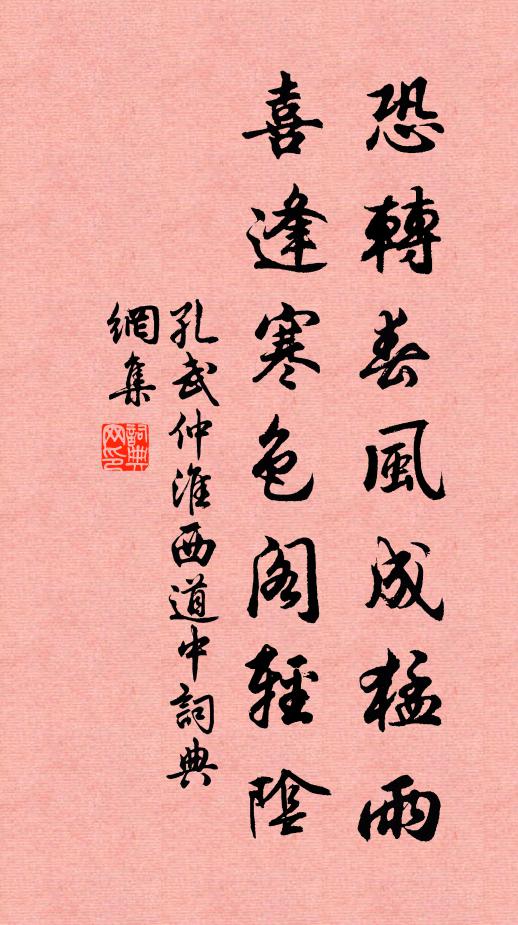 恐轉春風成猛雨
喜逢寒色閣輕陰
孔武仲淮西道中詞典
網集
詞典網印